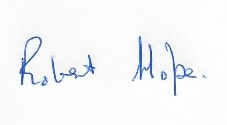 Robert Hope.